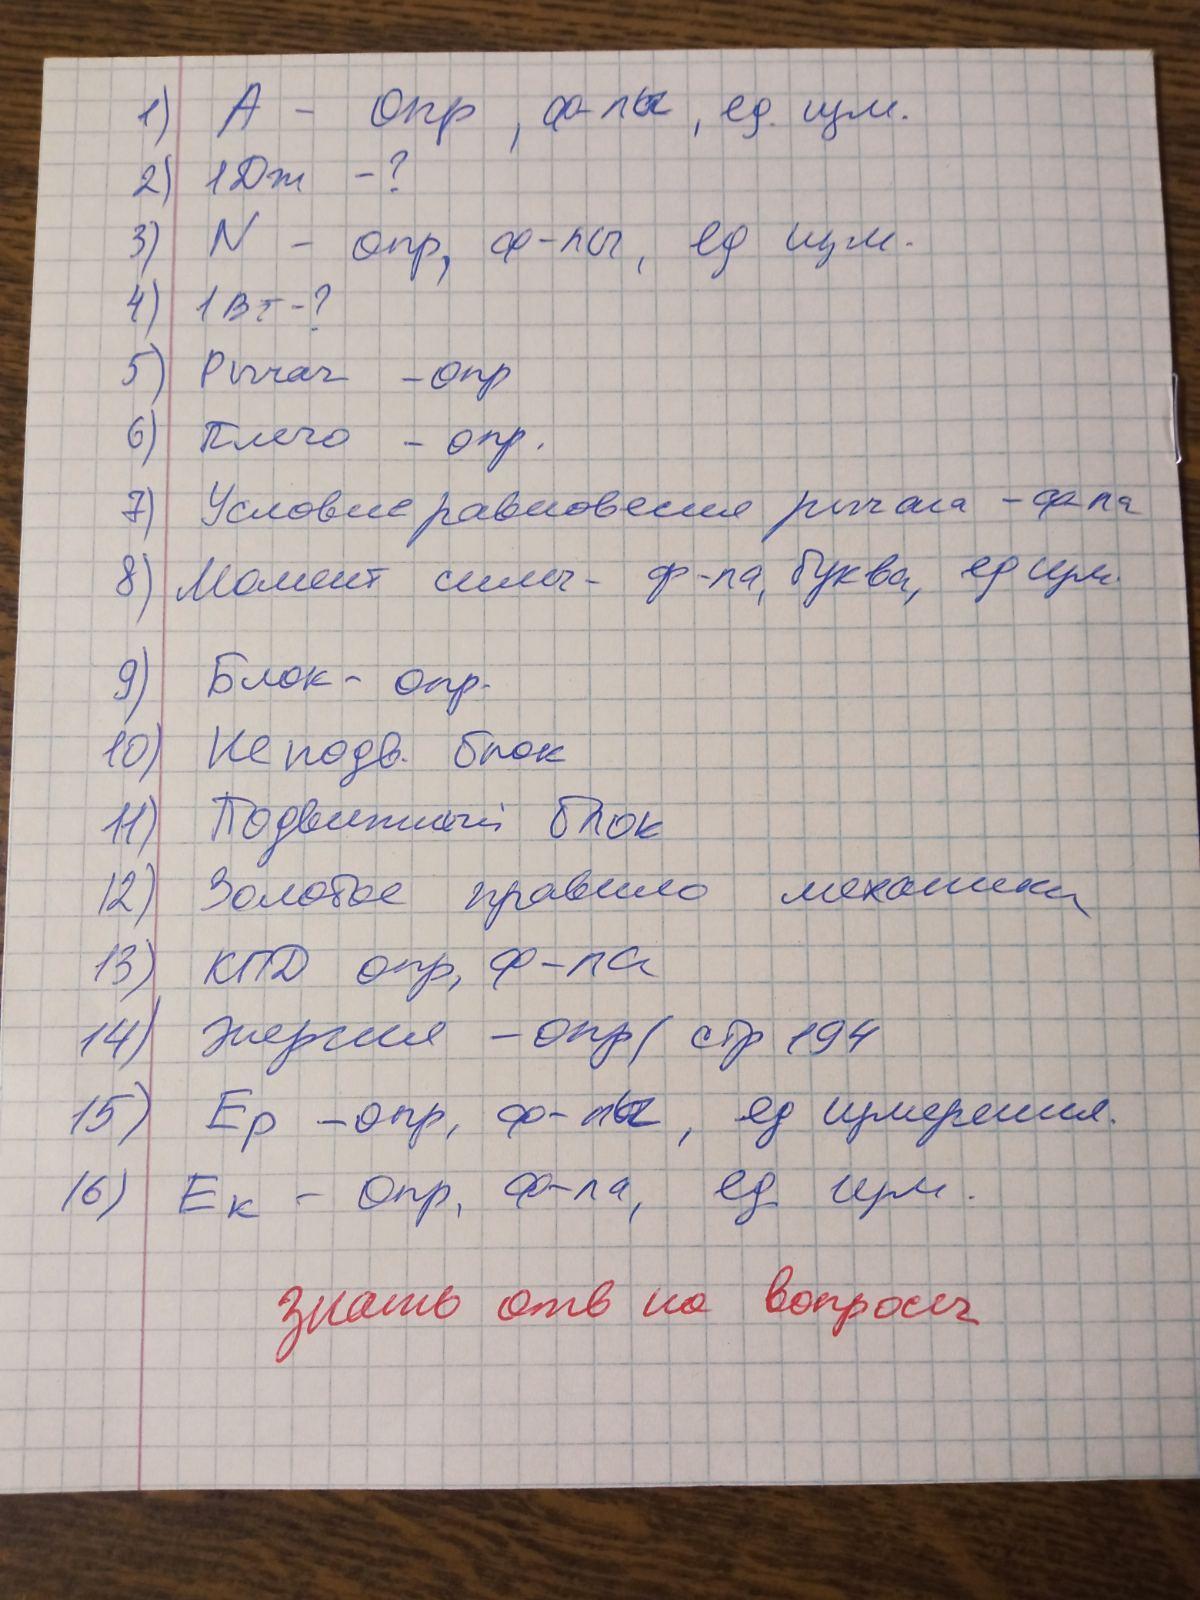 1) А - Опр, ф-лы, ед. изм.
2) 1Дж -?
3) N - опр, ф-лы, ед изм.
4) 1Вт-?
5) Рычаг - опр
6) Плечо - опр.
7) Условие равновесия рычага - ф-ла
8) Момент силы - ф-ла, буква, ед изм.
9) Блок - опр.
10) Неподв. блок
11) Подвижный блок
12) Золотое правило механики
13) КПД опр, ф-ла
14) Энергия - опр/ стр 194
15) Ер - опр, ф-лы, ед измерения.
16) Ек - опр, ф-ла, ед изм.
Знать отв на вопросы